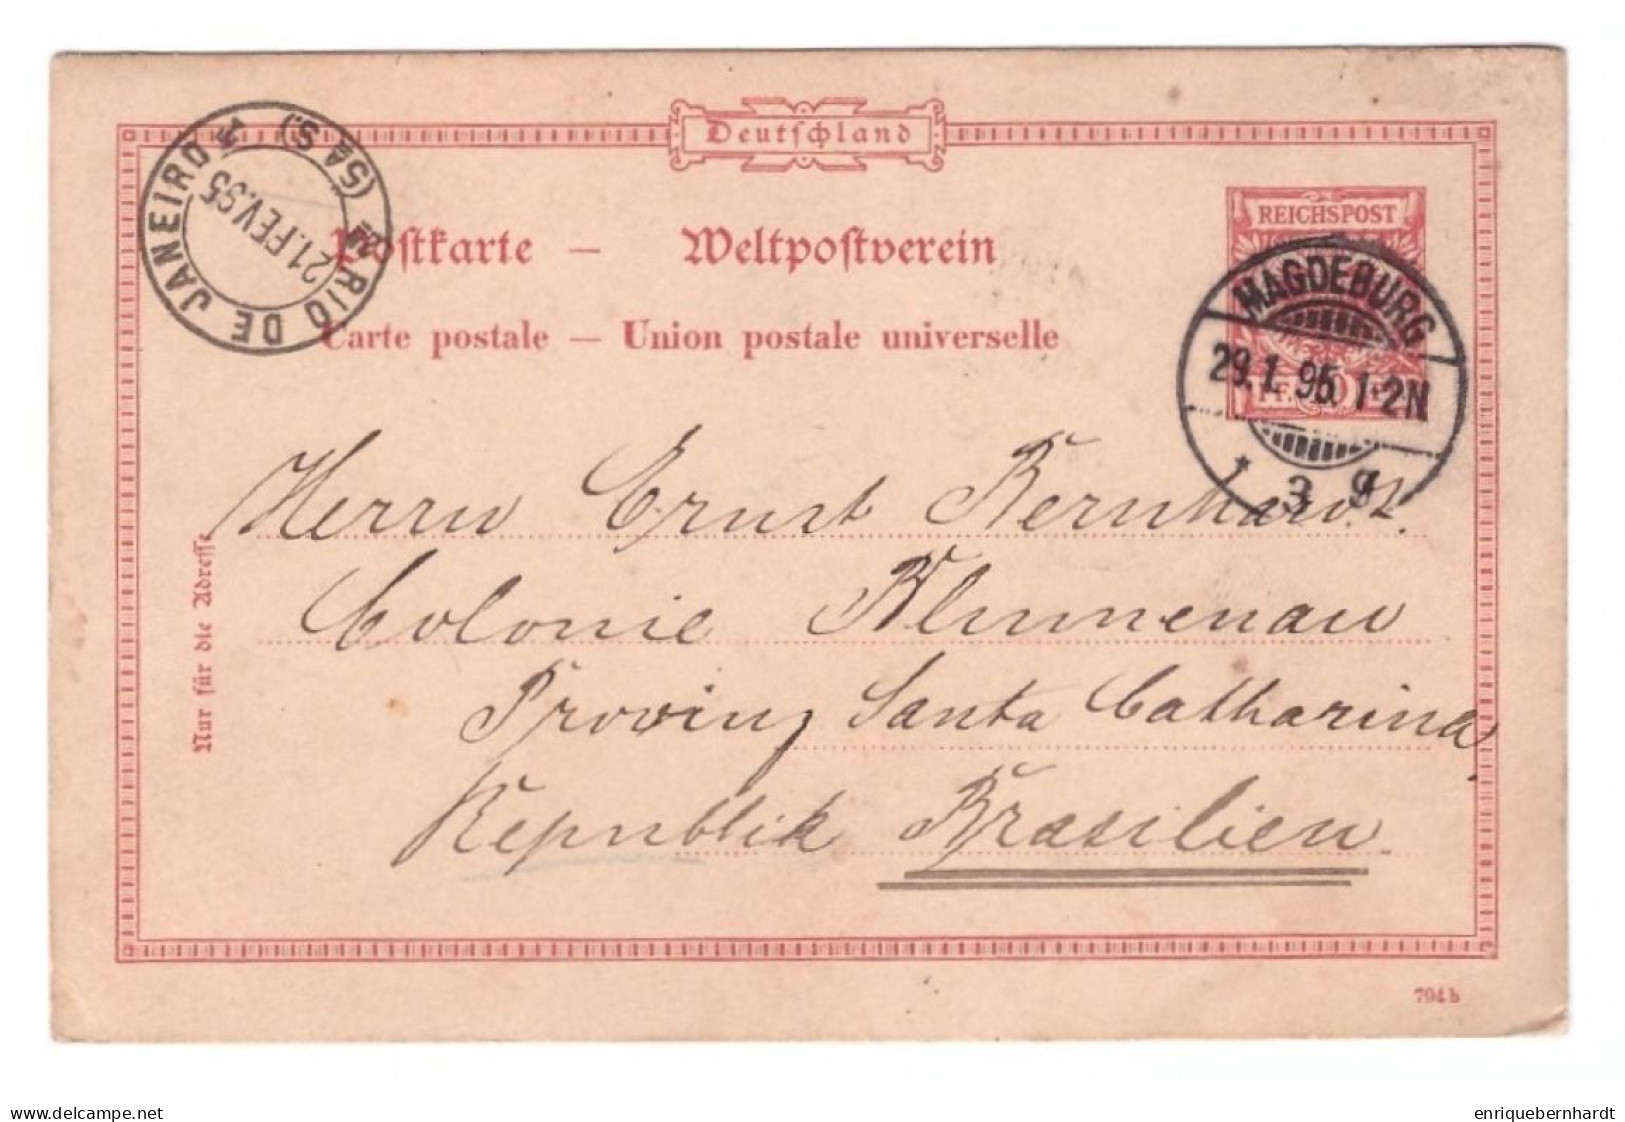 Deutschland
RIO DE JANEIRO (5ª S.)
21.FEV.95
Postkarte — Weltpostverein
Carte postale — Union postale universelle
REICHSPOST
PF. 10 PF.
MAGDEBURG
29.1.95. 1-2N
* 3 g
Herrn Ernst Bernhardt.
Colonie Blumenau
Provinz Santa Catharina,
Republik Brasilien.
Nur für die Adresse
794b
delcampe.net
enriquebernhardt